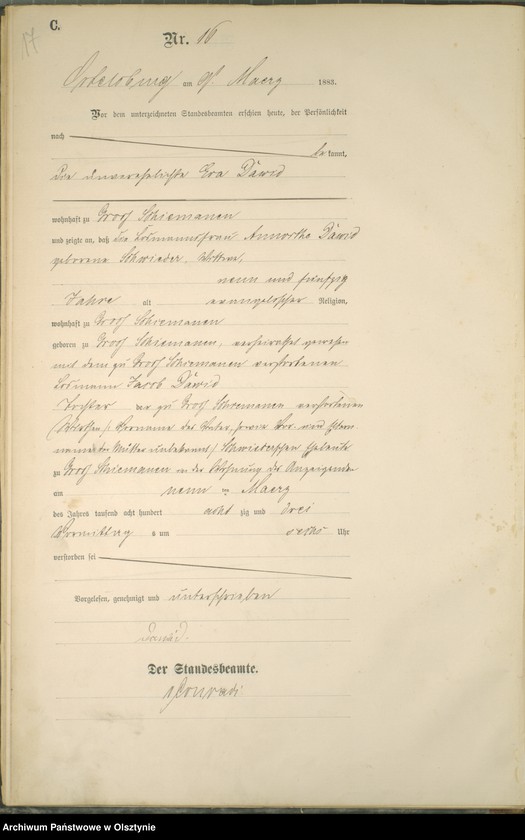 C.
17
Nr. 16
Ortelsburg am 9t Maerz 1883.
Vor dem unterzeichneten Standesbeamten erschien heute, der Persönlichkeit
nach
be kannt,
die unverehelichte Eva Dawid
wohnhaft zu Groß Schiemanen
und zeigte an, daß die Losmannsfrau Dawid
geborene Schwieder, Wittwe,
neun und fünfzig
Jahre alt evangelischer Religion,
wohnhaft zu Groß Schiemanen
geboren zu Groß Schiemanen, verheirathet gewesen
mit dem zu Groß Schiemanen verstorbenen
Losmann Jacob Dawid
Tochter der zu Groß Schiemanen verstorbenen
/ Vorname des Vaters, sowie Vor- und
name der Mutter unbekannt / Schwiederschen Eheleute
zu Groß Schiemanen in der Wohnung der Anzeigenden
am neun ten Maerz
des Jahres tausend acht hundert acht zig und drei
Vormittag s um sechs Uhr
verstorben sei
Vorgelesen, genehmigt und unterschrieben
Dawid.
Der Standesbeamte.
Conradi
Archiwum Państwowe w Olsztynie